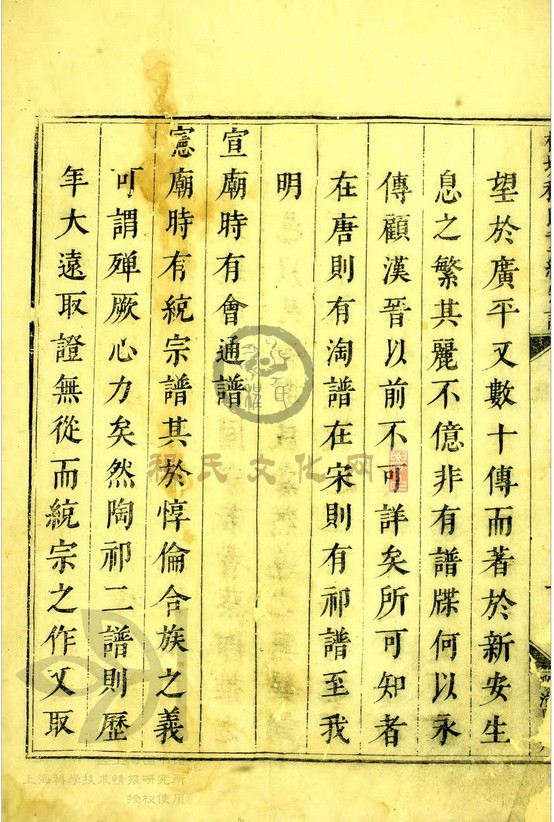 望於廣平又數十傳而著於新安生
息之繁其麗不億非有譜牒何以永
傳顧漢晉以前不可詳矣所可知者
在唐則有淘譜在宋則有祁譜至我
明
宣廟時有會通譜
憲廟時有統宗譜其於惇倫合族之義
可謂殫厥心力矣然陶祁二譜則歷
年大遠取證無從而統宗之作又取
程氏文化网
上海科学技术情报研究所
授权使用